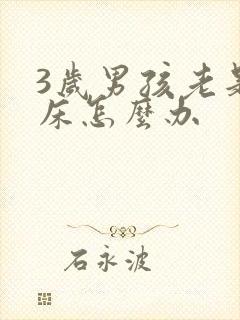 3歲男孩老是
床怎麼办
石永波